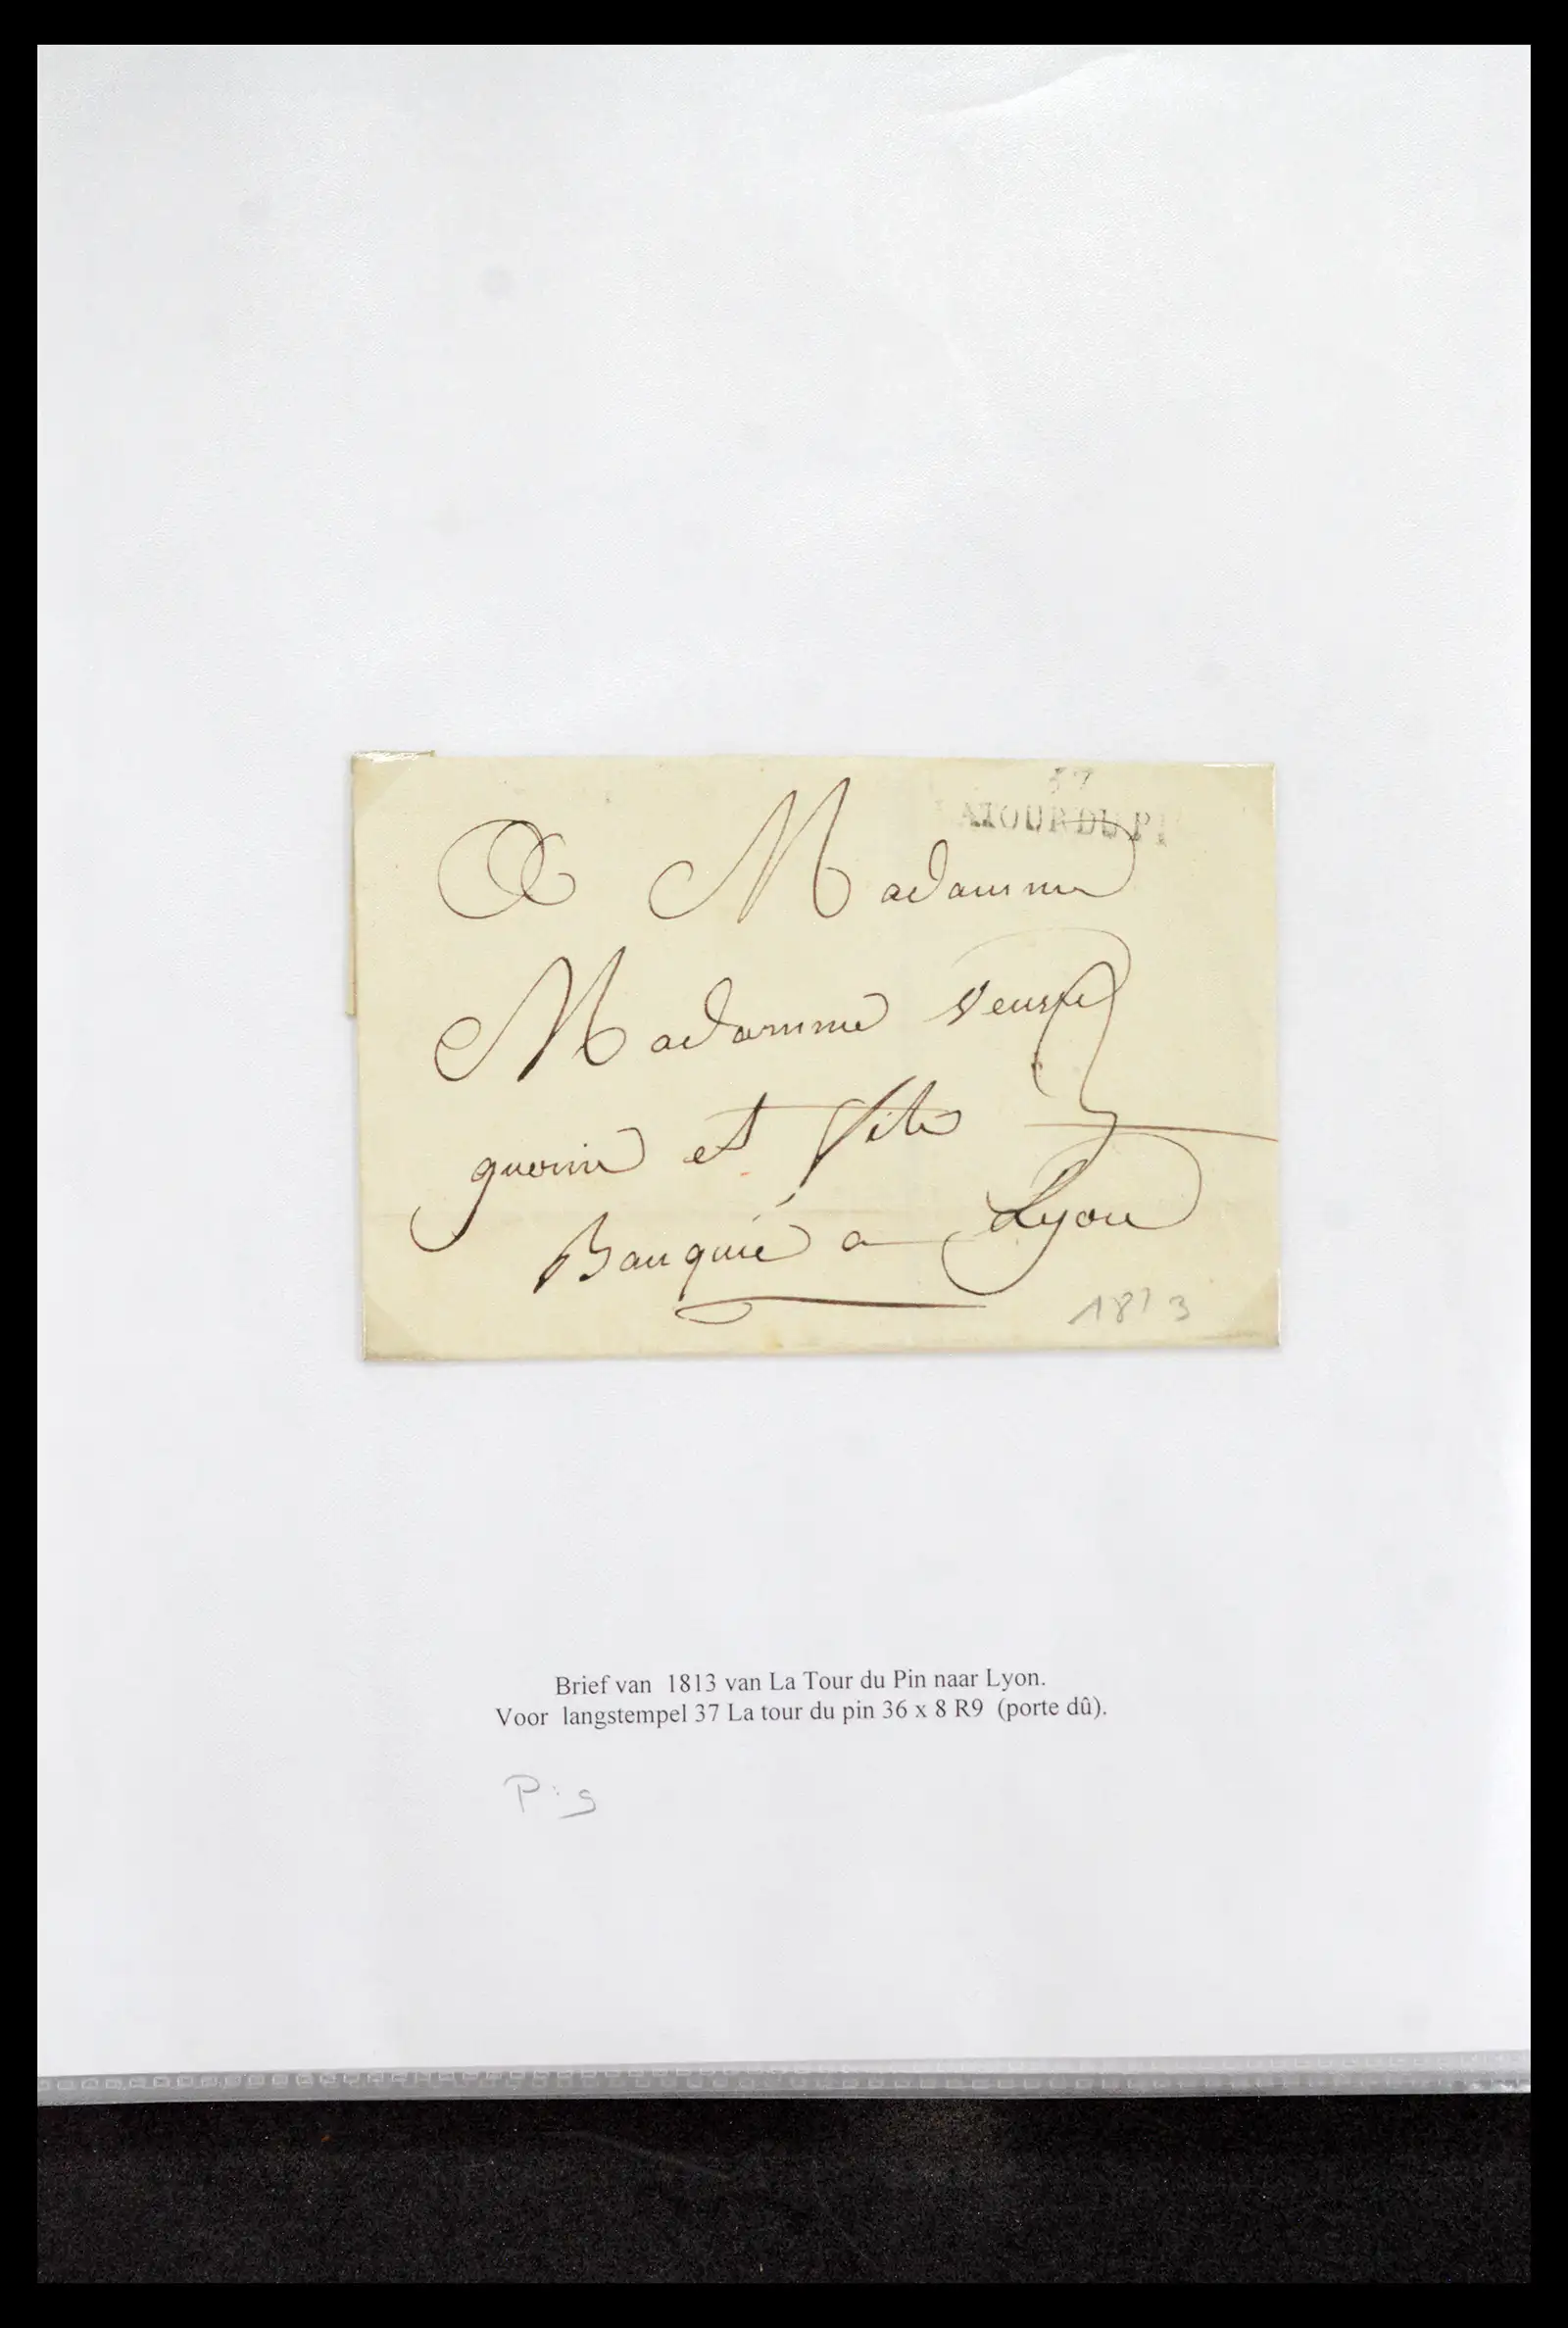 37
LATOUR DU PI
A Madamme
Madamme veuve
guerin et fils
Banquié a Lyon
1813
Brief van 1813 van La Tour du Pin naar Lyon.
Voor langstempel 37 La tour du pin 36 x 8 R9 (porte dû).